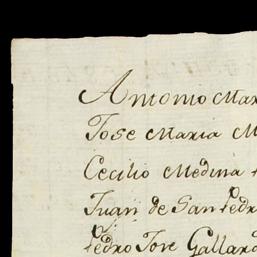 Antonio Mar
Jose Maria M
Cecilio Medina
Juan de San Pedr
Pedro Jose Gallard